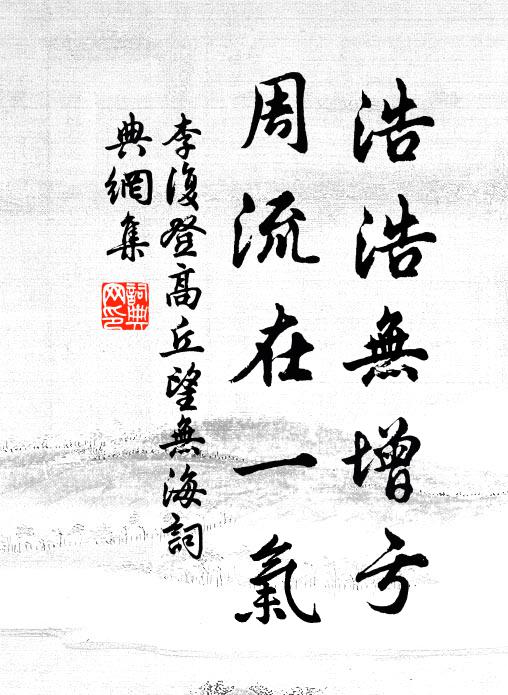 浩浩無增亏
周流在一氣
李復登高丘望無海詞
典網集
詞典網印